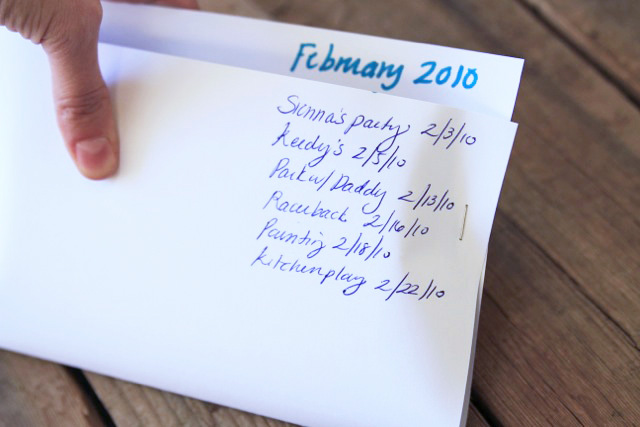 February 2010
Sienna's party 2/3/10
Keedy's 2/5/10
Park w/Daddy 2/13/10
Raceback 2/16/10
Painting 2/18/10
Kitchen play 2/22/10